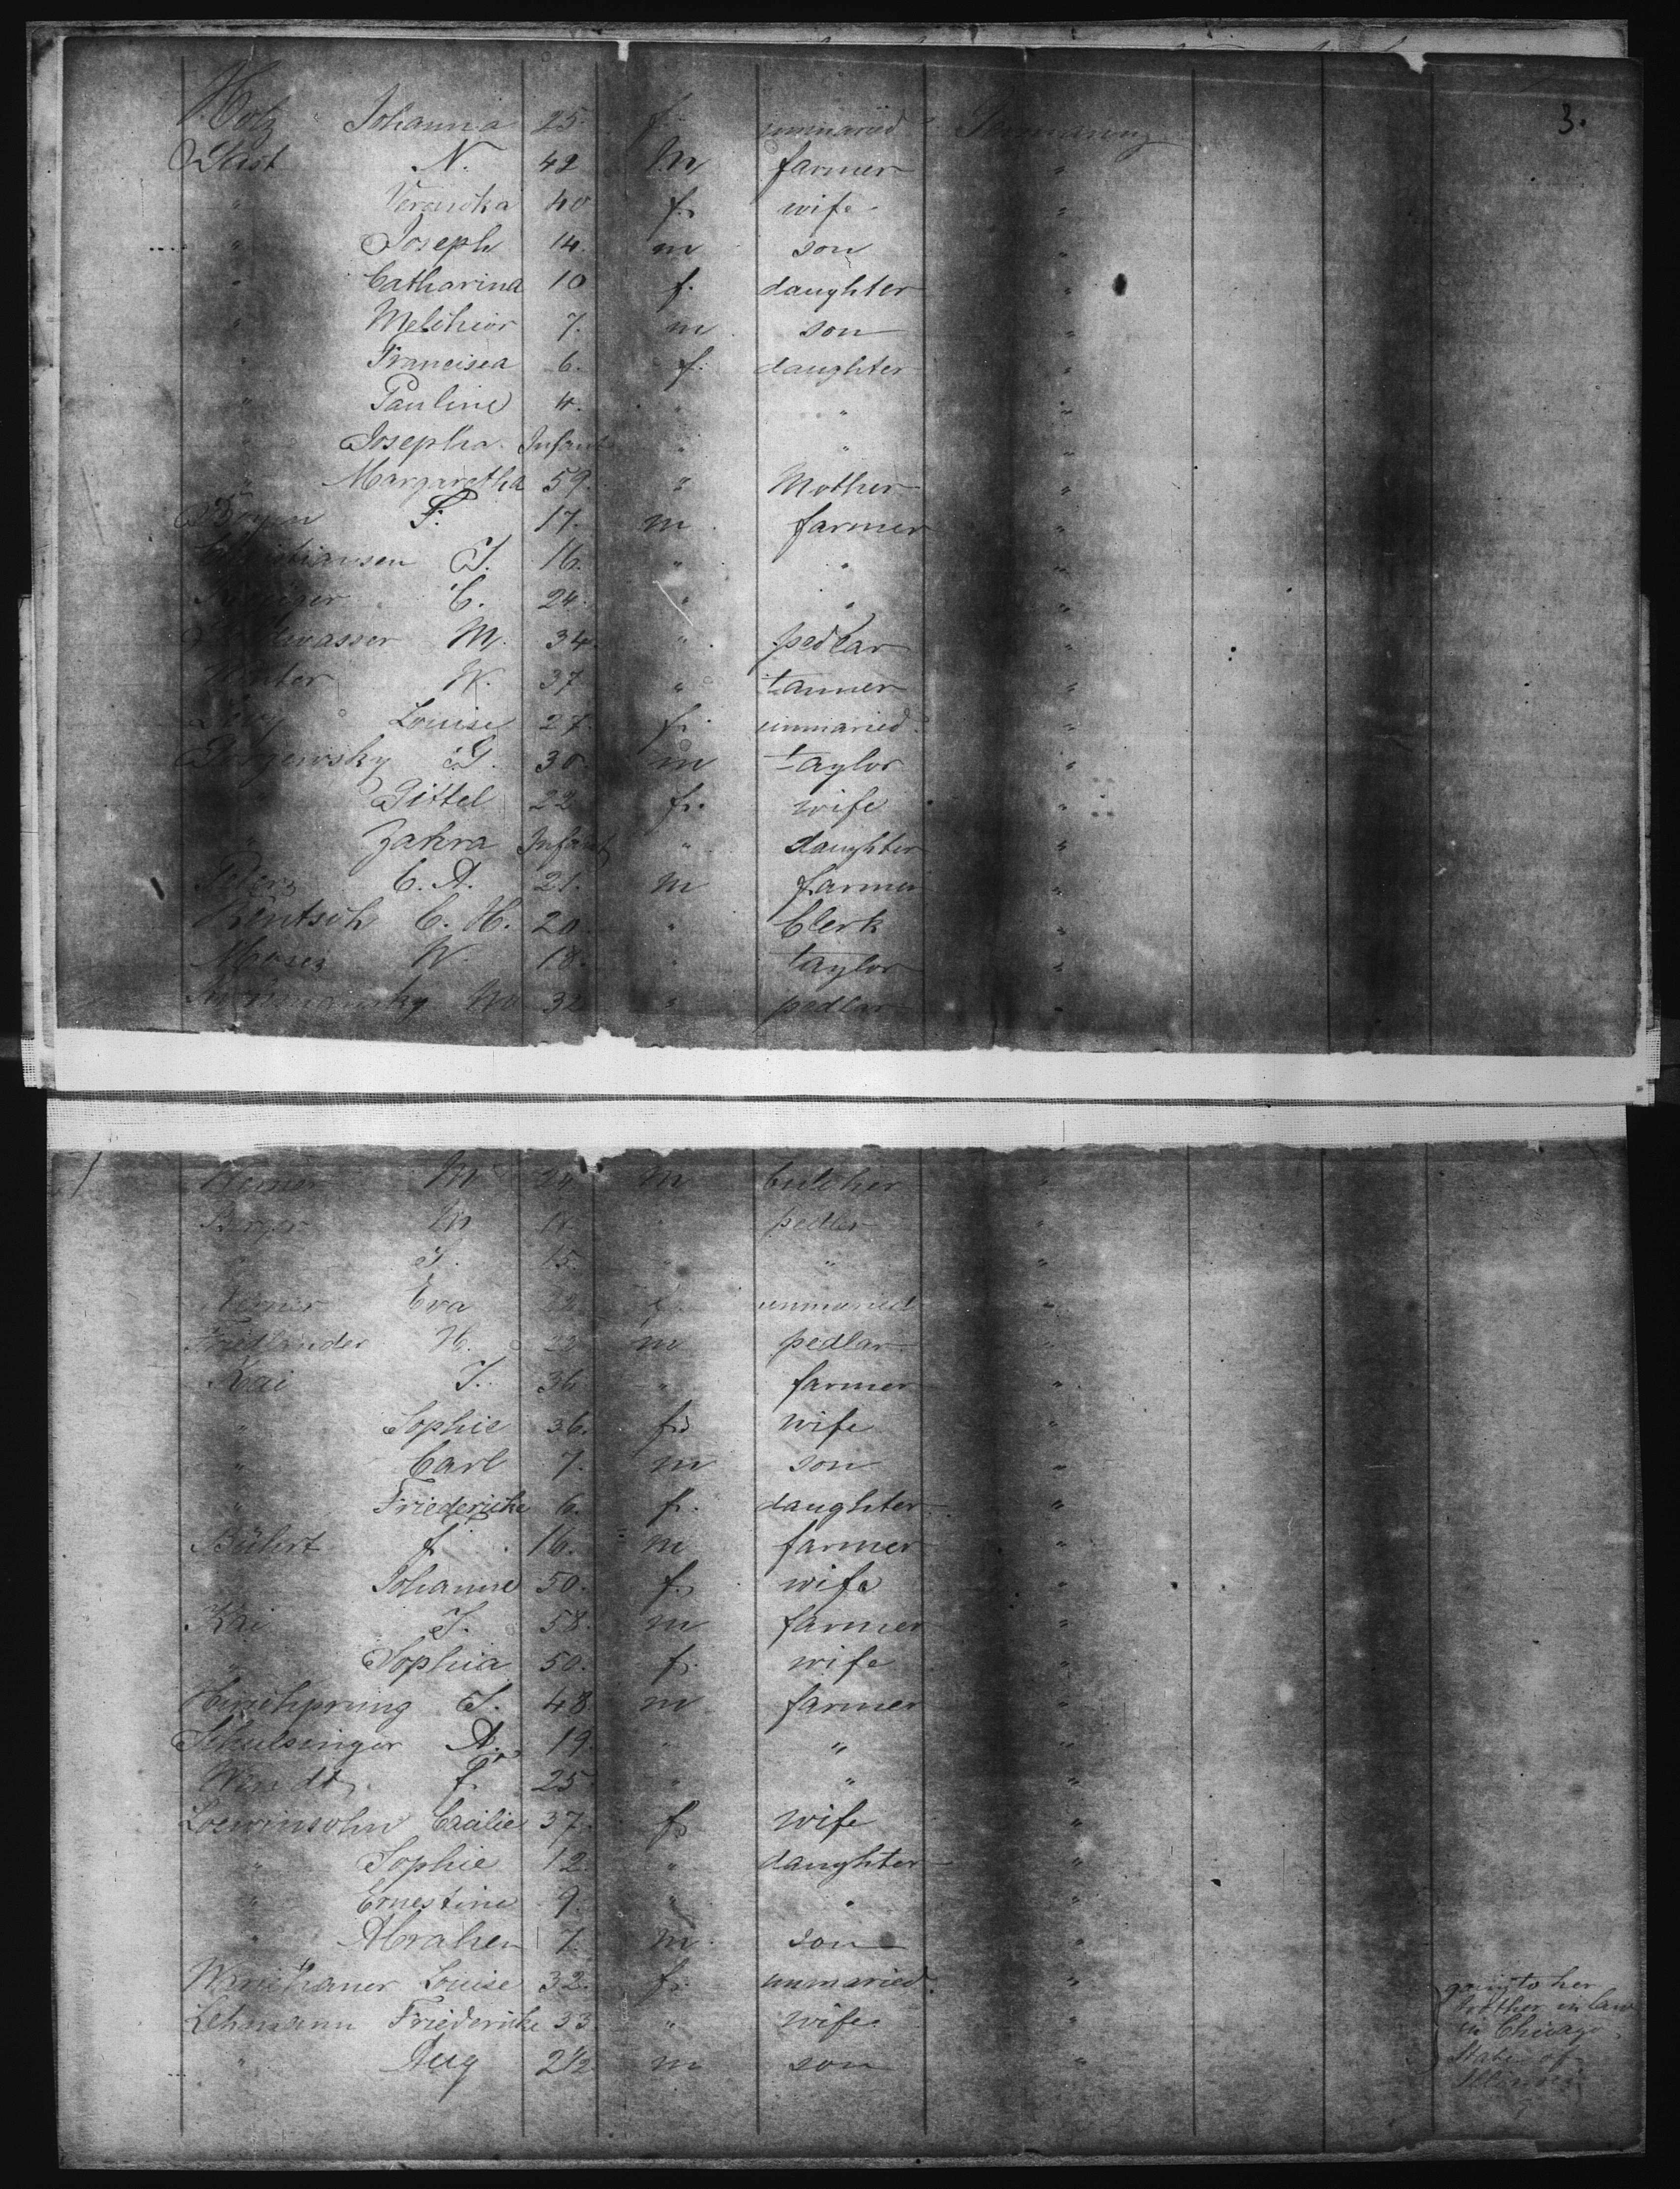 3.
Holz Johanna 25. f. unmaried Germany
N. 42 m farmer "
" Veronika 40 f. wife "
" Joseph 14. m son "
" Catharina 10 f. daughter "
" Melchior 7. m son "
" Francisca 6. f. daughter "
" Pauline 4. " " "
" Josepha Infant " " "
" Margaretha 59. " Mother "
F. 17. m farmer "
Christiansen J. 16. " " "
C. 24. " " "
M. 34. " pedlar "
Winter W. 37 " tanner "
Levy Louise 27. f. unmaried "
J. 30. m taylor "
" Gittel 22 f. wife "
" Zahra Infant " daughter "
Peters C. A. 21. m farmer "
Rentsch C. H. 20. " Clerk "
Moses W. 18. " taylor "
32 " pedlar "
M m butcher "
Berger M " pedlar "
" J. 15. " " "
Eva f. unmaried "
Friedlander H. 22 m pedlar "
Kai J. 36 " farmer "
" Sophie 36. f. wife "
" Carl 7. m son "
" Friedericke 6. f. daughter "
Bühert f. 16. m farmer "
Johanne 50. f. wife "
Kai J. 58. m farmer "
" Sophia 50. f. wife "
Hirschsprung S. 48 m farmer "
Schulsinger A. 19. " " "
Wendt F. 25. " " "
Loewinsohn Cacilie 37. f. wife "
" Sophie 12. " daughter "
" Ernestine 9. " " "
" Abrahen 7. m. son "
Louise 32. f. unmaried. "
Lehmann Friedericke 33. " wife. "
" Aug 2½ m son "
going to her
brother in law
in Chicago,
State of
Illinois